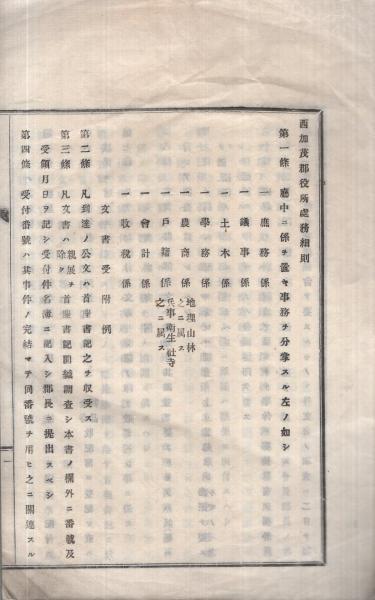 西加茂郡役所處務細則
第一條 廳中ニ係チ置キ事務チ分掌スル左ノ如シ
一庶務係
一議事係
一土木係
一學務係
一農商係 地理山林之ニ属ス
一戸籍係 兵事衛生社寺之ニ属ス
一會計係
一收税係
文書受附例
第二條 凡到達ノ公文ハ首座書記之チ収受ス
第三條 凡文書ハ親展チ除ク首座書記開緘調査シ本書ノ欄外ニ番號及
受領月日ヲ記シ受付件名簿ニ記入シ郡長ニ提出スベシ
第四條 受付番號ハ其事件ノ完結マテ同番號チ用ヒ之ニ關連スル
一